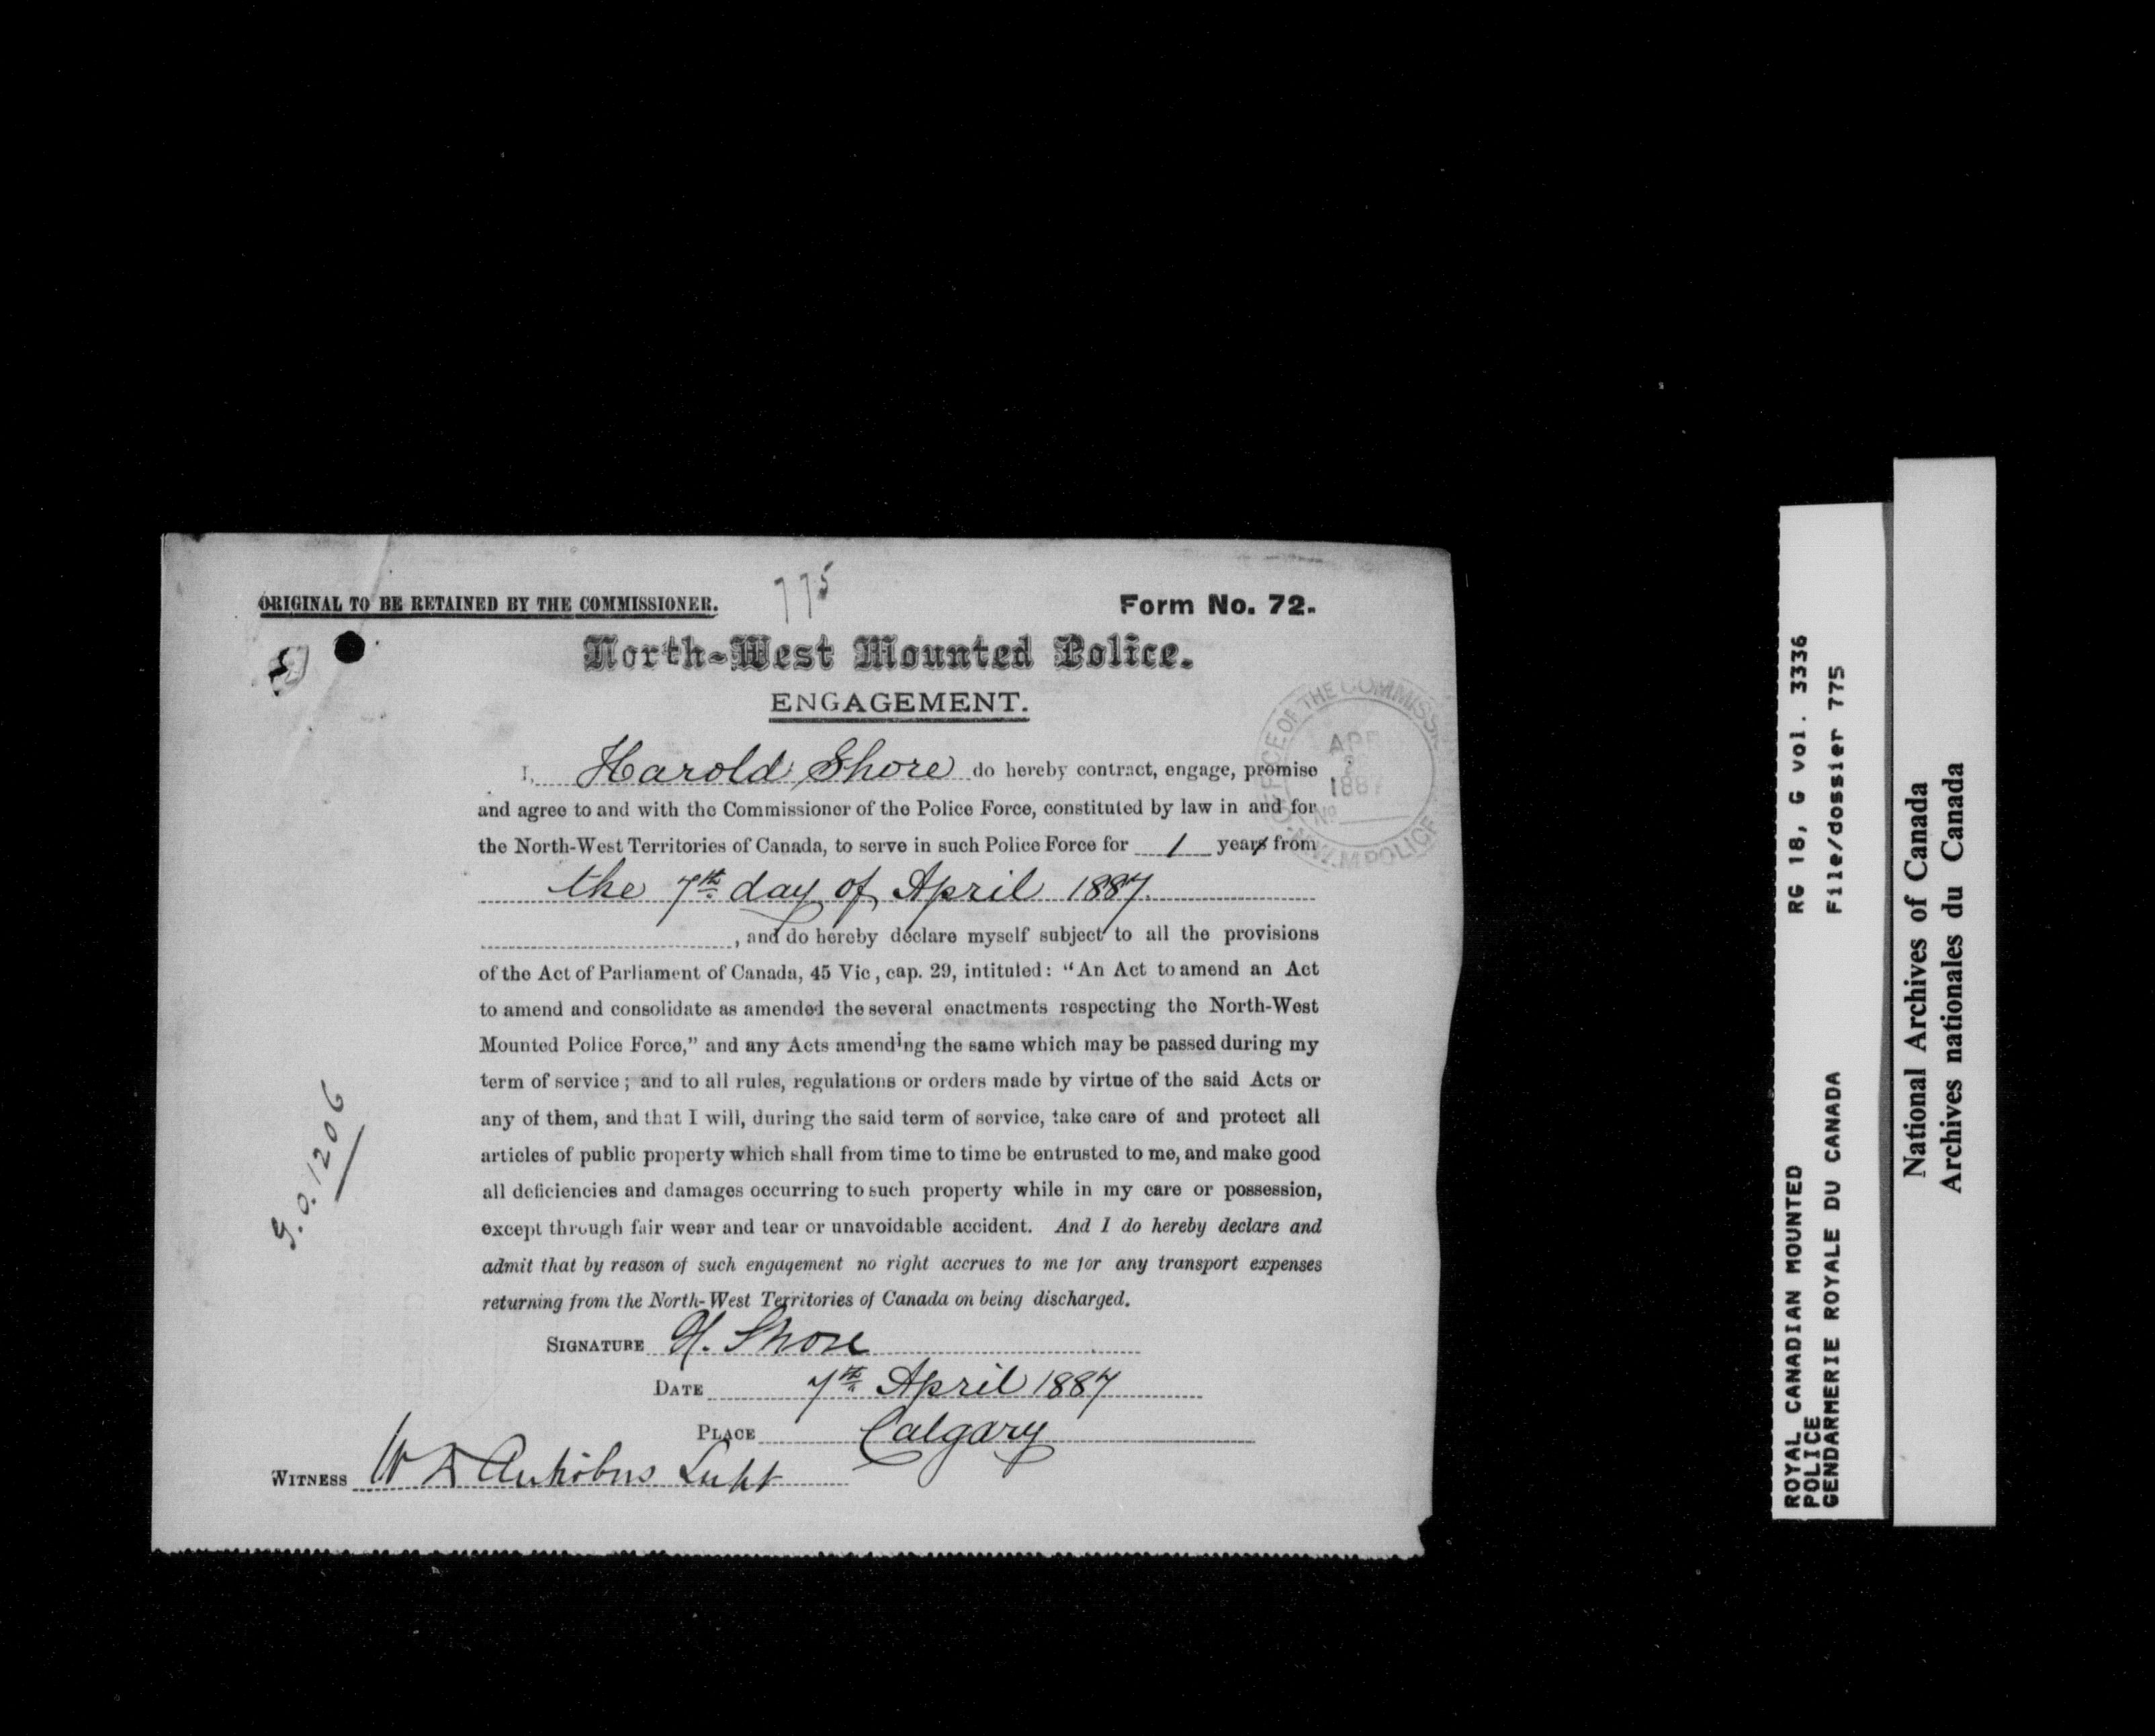 775
ORIGINAL TO BE RETAINED BY THE COMMISSIONER.
Form No. 72.
North-West Mounted Police.
ENGAGEMENT.
OFFICE OF THE COMMISSI
APR
2
1887
No
N.W.M. POLICE
I, Harold Shore do hereby contract, engage, promise
and agree to and with the Commissioner of the Police Force, constituted by law in and for
the North-West Territories of Canada, to serve in such Police Force for 1 years from
the 7th day of April 1887.
, and do hereby declare myself subject to all the provisions
of the Act of Parliament of Canada, 45 Vic, cap. 29, intituled: “An Act to amend an Act
to amend and consolidate as amended the several enactments respecting the North-West
Mounted Police Force,” and any Acts amending the same which may be passed during my
term of service; and to all rules, regulations or orders made by virtue of the said Acts or
any of them, and that I will, during the said term of service, take care of and protect all
articles of public property which shall from time to time be entrusted to me, and make good
all deficiencies and damages occurring to such property while in my care or possession,
except through fair wear and tear or unavoidable accident. And I do hereby declare and
admit that by reason of such engagement no right accrues to me for any transport expenses
returning from the North-West Territories of Canada on being discharged.
SIGNATURE H. Shore
DATE 7th April 1887
PLACE Calgary
WITNESS W D Antrobus Supt
G.O. 1206
ROYAL CANADIAN MOUNTED
POLICE
GENDARMERIE ROYALE DU CANADA
RG 18, G vol. 3336
File/dossier 775
National Archives of Canada
Archives nationales du Canada